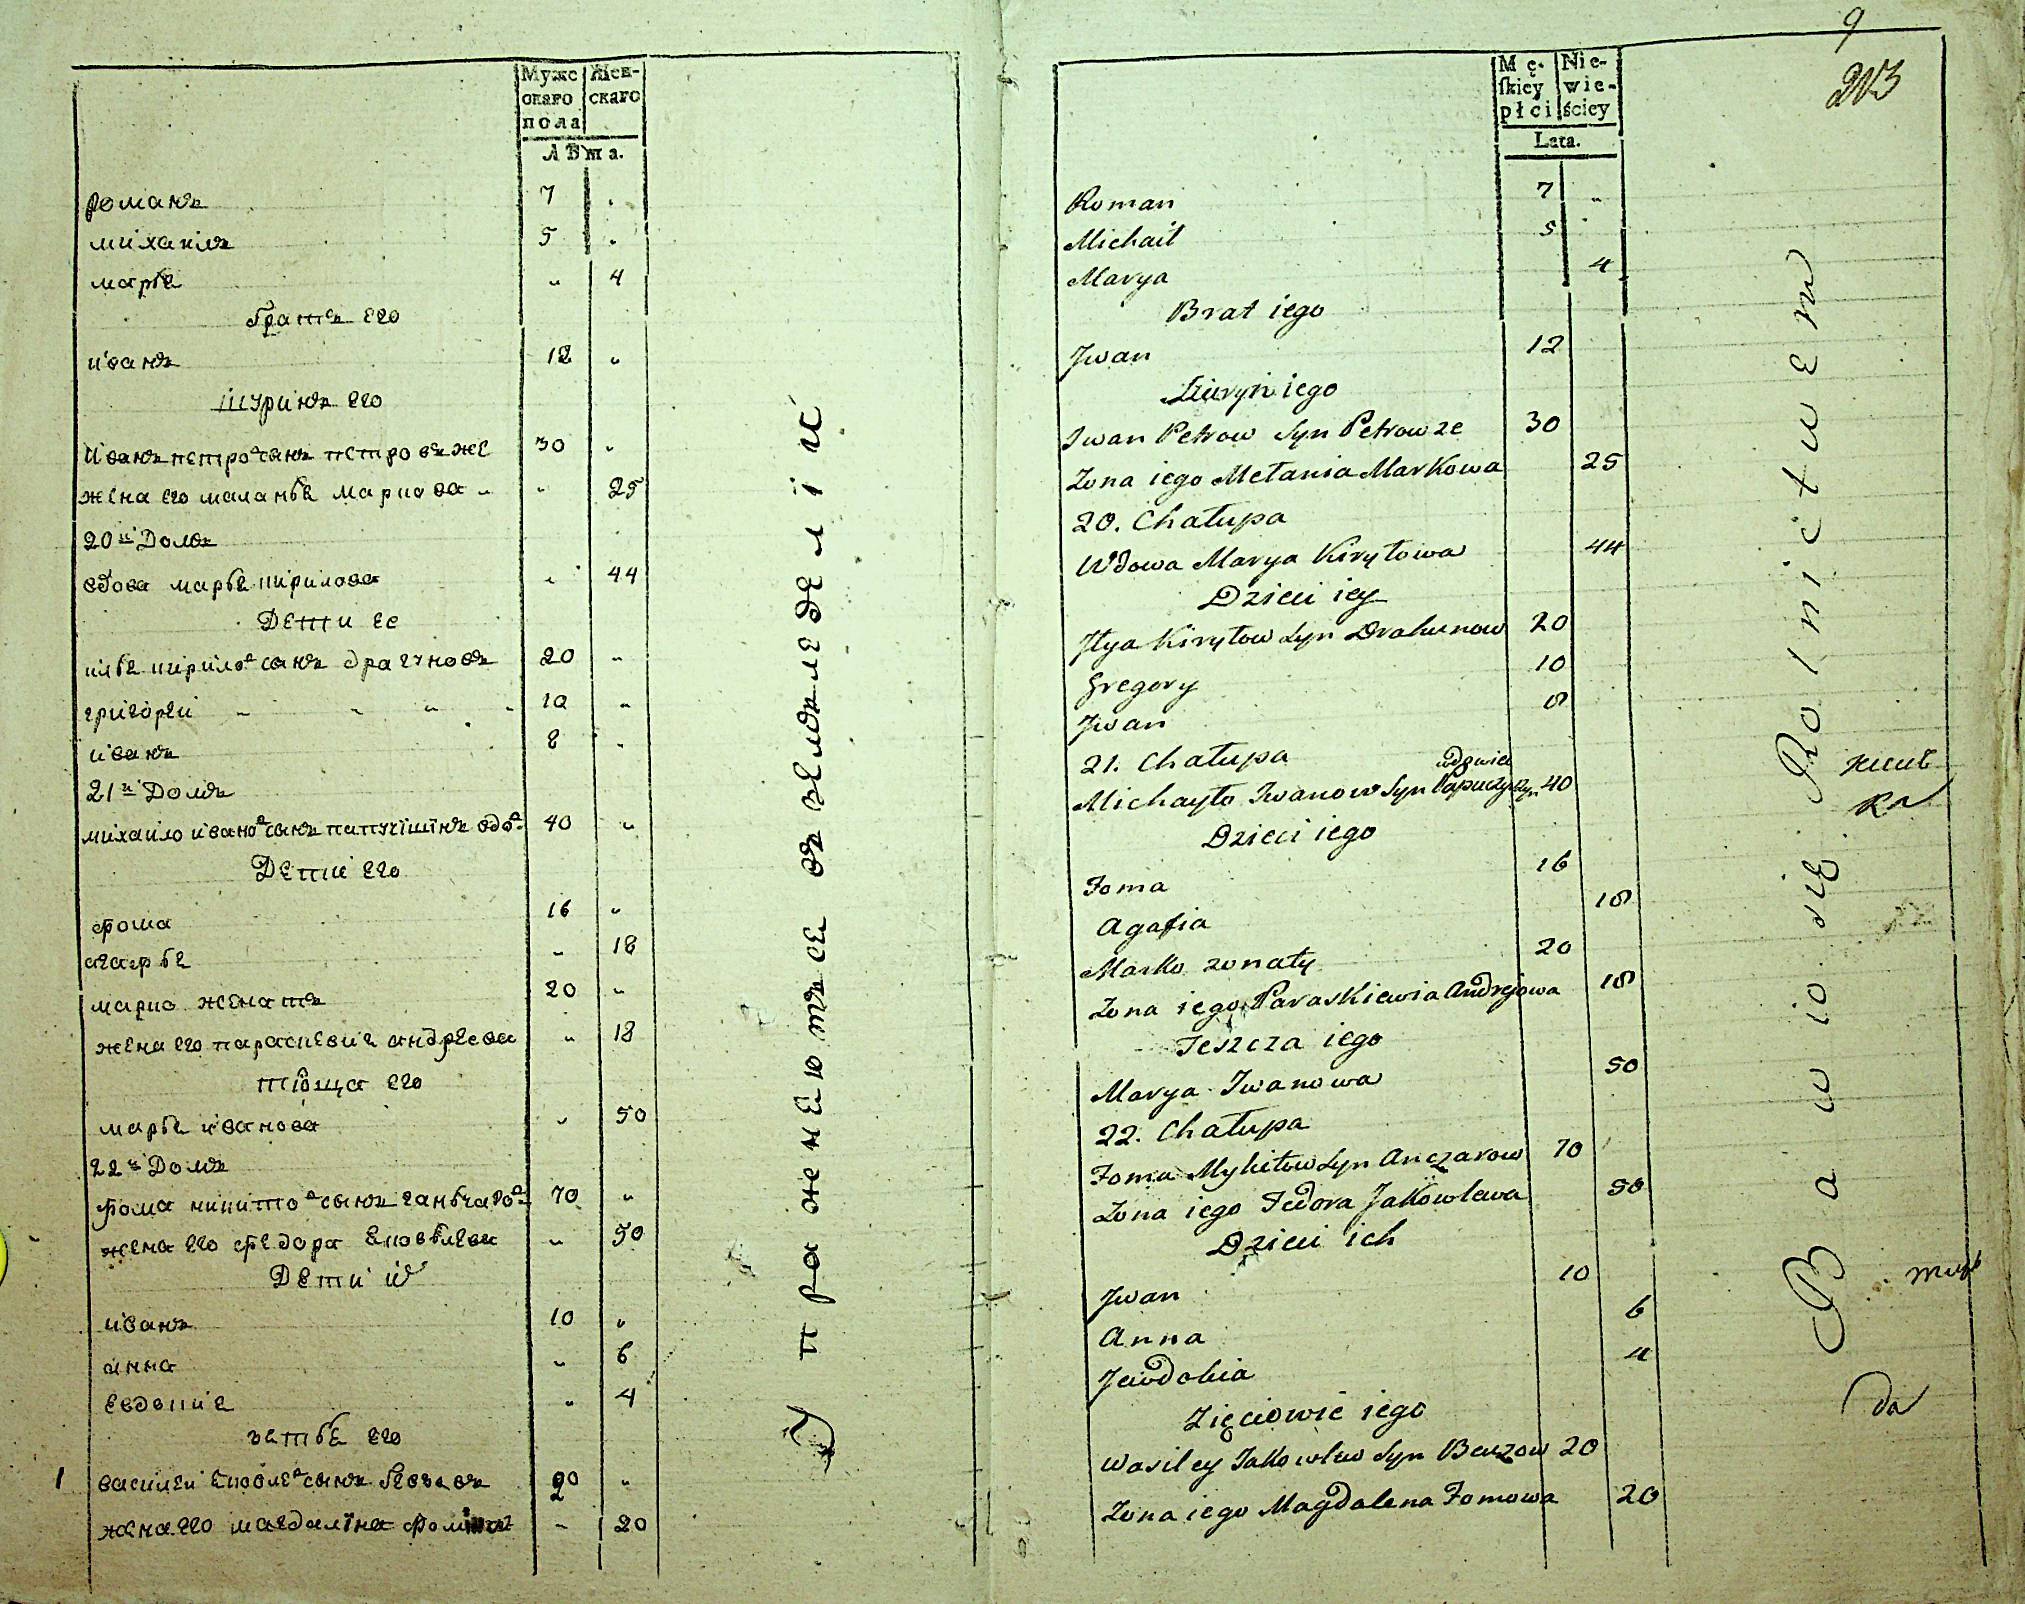 Мужс Жен-
скаго скаго
пола
Лѣта.
романъ 7 „
михаилъ 5 „
марья „ 4
братъ его
иванъ 12 „
шуринъ его
иванъ петро в сынъ петровъ же 30 „
жена его маланья маркова „ 25
20й Домъ
вдова марья кирилова „ 44
Дети ее
илья кирило в сынъ драгуновъ 20 „
григорей 10 „
иванъ 8 „
21й Домъ
михаило ивано в сынъ папушинъ вдов 40 „
Дети его
фома 16 „
агафья „ 18
марко женатъ 20 „
жена его параскевия андреева „ 18
тіоща его
марья иванова „ 50
22й Домъ
фома никито в сынъ ганчаров 70 „
жена его федора яковлева „ 50
Дети их
иванъ 10 „
анна „ 6
евдокия „ 4
зятья его
1 василеи яковле в сынъ 20 „
жена его магдалина фомина „ 20
упражняются въ земледеліи
9
Mę- Nie-
skiey wie-
płci ściey
Lata.
Roman 7 „
Michaił 5
Marya 4
Brat iego
Jwan 12
Szuryn iego
Iwan Petrow Syn Petrow ze 30
Zona iego Mełania Markowa 25
20. Chałupa
Wdowa Marya Kiryłowa 44
Dzieci iey
Jłya Kiryłow Syn Drahunow 20
Gregory 10
Jwan 8
21. Chałupa
wdowiec
Michayło Iwanow Syn Papuszyn 40
Dzieci iego
Foma 16
Agafia 18
Marko zonaty 20
Zona iego Paraskiewia Andrejowa 18
Teszcza iego
Marya Iwanowa 50
22. Chałupa
Foma Mykitow Syn Anczarow 70
Zona iego Fedora Jakowlewa 50
Dzieci ich
Jwan 10
Anna 6
Jewdokia 4
Zięciowie iego
Wasiley Jakowlew Syn 20
Zona iego Magdalena Fomowa 20
Bawio się Rolnictwem